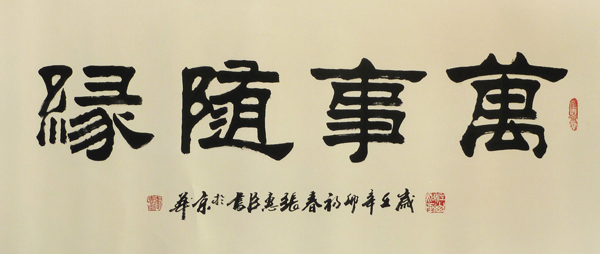 萬事随緣
歲在辛卯初春張惠臣書於京華